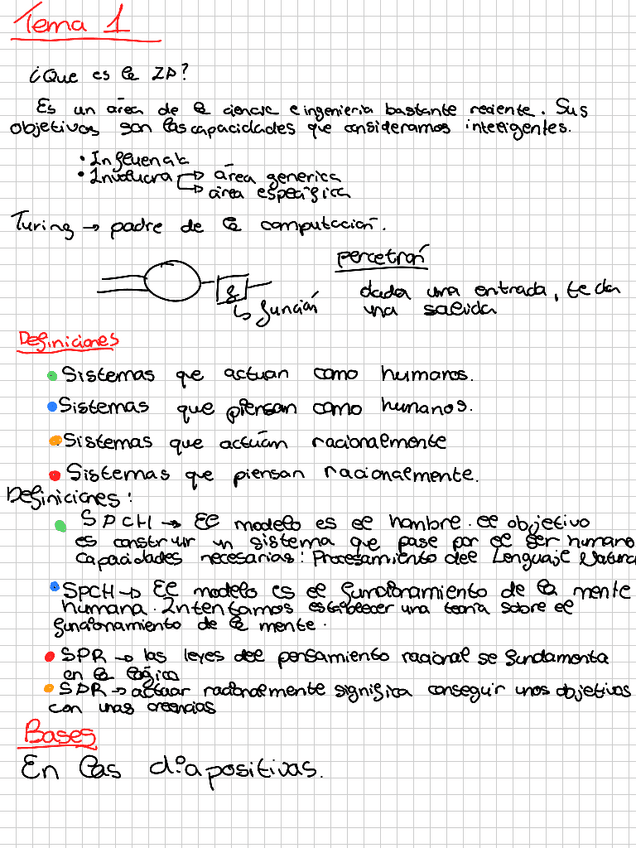 Tema 1
¿Que es la IA?
Es un área de la ciencia e ingenieria bastante reciente. Sus
objetivos son las capacidades que consideramos inteligentes.
• Influencia
• Involucra → área generica
→ área especifica
Turing → padre de la computación.
percetrón
dada una entrada, te da
una salida
f
↳ función
Definiciones
Sistemas que actuan como humanos.
Sistemas que piensan como humanos.
Sistemas que actúan racionalmente
Sistemas que piensan racionalmente.
Definiciones:
SPCH → El modelo es el hombre. el objetivo
es construir un sistema que pase por el ser humano
capacidades necesarias: Procesamiento del Lenguaje Natura
SPCH → El modelo es el funcionamiento de la mente
humana. Intentamos establecer una teoría sobre el
funcionamiento de la mente.
SPR → las leyes del pensamiento racional se fundamenta
en la lógica
→ actuar racionalmente significa conseguir unos objetivos
con unas creencias
Bases
En las diapositivas.